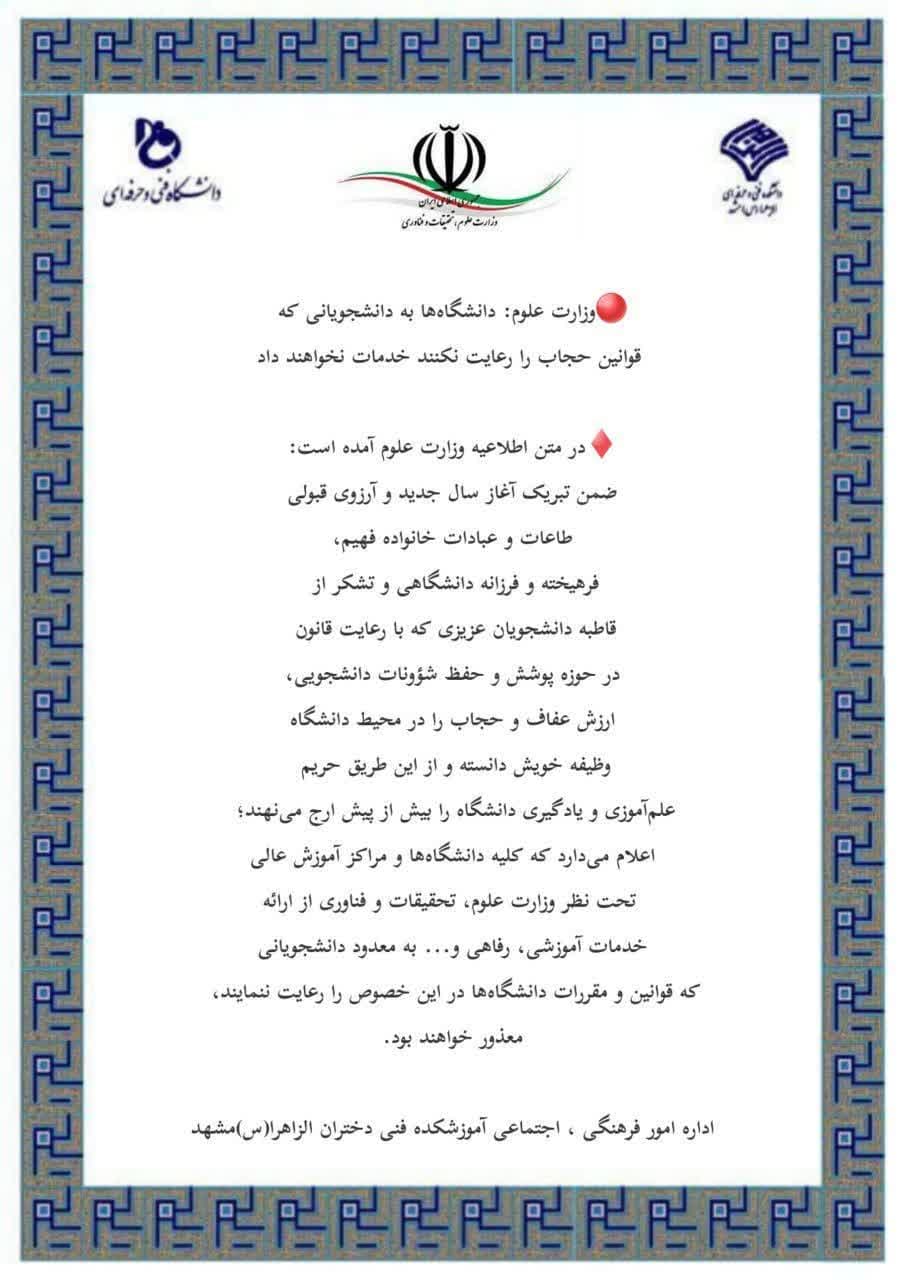 دانشگاه فنی و حرفه‌ای
جمهوری اسلامی ایران
وزارت علوم، تحقیقات و فناوری
وزارت علوم: دانشگاه‌ها به دانشجویانی که
قوانین حجاب را رعایت نکنند خدمات نخواهند داد
در متن اطلاعیه وزارت علوم آمده است:
ضمن تبریک آغاز سال جدید و آرزوی قبولی
طاعات و عبادات خانواده فهیم،
فرهیخته و فرزانه دانشگاهی و تشکر از
قاطبه دانشجویان عزیزی که با رعایت قانون
در حوزه پوشش و حفظ شؤونات دانشجویی،
ارزش عفاف و حجاب را در محیط دانشگاه
وظیفه خویش دانسته و از این طریق حریم
علم‌آموزی و یادگیری دانشگاه را بیش از پیش ارج می‌نهند؛
اعلام می‌دارد که کلیه دانشگاه‌ها و مراکز آموزش عالی
تحت نظر وزارت علوم، تحقیقات و فناوری از ارائه
خدمات آموزشی، رفاهی و... به معدود دانشجویانی
که قوانین و مقررات دانشگاه‌ها در این خصوص را رعایت ننمایند،
معذور خواهند بود.
اداره امور فرهنگی ، اجتماعی آموزشکده فنی دختران الزاهرا(س)مشهد